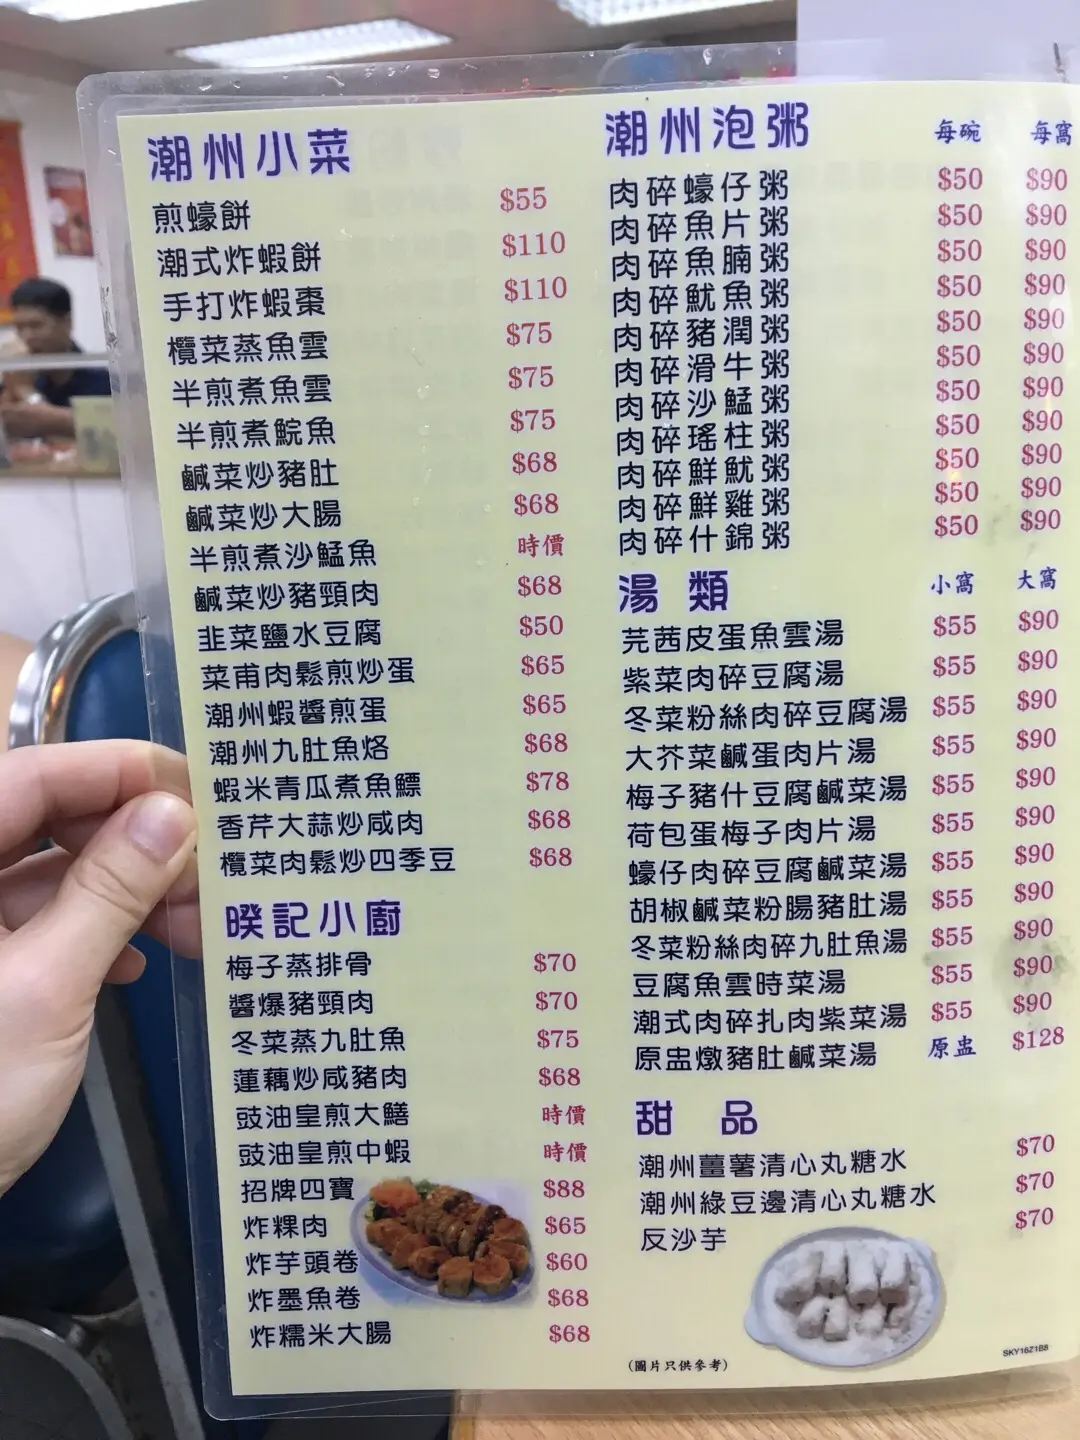 潮州小菜
煎蠔餅 $55
潮式炸蝦餅 $110
手打炸蝦棗 $110
欖菜蒸魚雲 $75
半煎煮魚雲 $75
半煎煮鯇魚 $75
鹹菜炒豬肚 $68
鹹菜炒大腸 $68
半煎煮沙鯭魚 時價
鹹菜炒豬頸肉 $68
韭菜鹽水豆腐 $50
菜甫肉鬆煎炒蛋 $65
潮州蝦醬煎蛋 $65
潮州九肚魚烙 $68
蝦米青瓜煮魚鰾 $78
香芹大蒜炒咸肉 $68
欖菜肉鬆炒四季豆 $68
暌記小廚
梅子蒸排骨 $70
醬爆豬頸肉 $70
冬菜蒸九肚魚 $75
蓮藕炒咸豬肉 $68
豉油皇煎大鱔 時價
豉油皇煎中蝦 時價
招牌四寶 $88
炸粿肉 $65
炸芋頭卷 $60
炸墨魚卷 $68
炸糯米大腸 $68
潮州泡粥 每碗 每窩
肉碎蠔仔粥 $50 $90
肉碎魚片粥 $50 $90
肉碎魚腩粥 $50 $90
肉碎魷魚粥 $50 $90
肉碎豬潤粥 $50 $90
肉碎滑牛粥 $50 $90
肉碎沙鯭粥 $50 $90
肉碎瑤柱粥 $50 $90
肉碎鮮魷粥 $50 $90
肉碎鮮雞粥 $50 $90
肉碎什錦粥 $50 $90
湯類 小窩 大窩
芫茜皮蛋魚雲湯 $55 $90
紫菜肉碎豆腐湯 $55 $90
冬菜粉絲肉碎豆腐湯 $55 $90
大芥菜鹹蛋肉片湯 $55 $90
梅子豬什豆腐鹹菜湯 $55 $90
荷包蛋梅子肉片湯 $55 $90
蠔仔肉碎豆腐鹹菜湯 $55 $90
胡椒鹹菜粉腸豬肚湯 $55 $90
冬菜粉絲肉碎九肚魚湯 $55 $90
豆腐魚雲時菜湯 $55 $90
潮式肉碎扎肉紫菜湯 $55 $90
原盅燉豬肚鹹菜湯 原盅 $128
甜品
潮州薑薯清心丸糖水 $70
潮州綠豆邊清心丸糖水 $70
反沙芋 $70
(圖片只供參考)
SKY16Z1B8